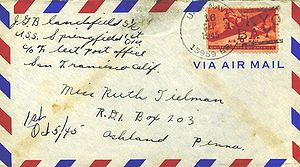 U.S.S. Springfield
c/o Fleet post office
San Francisco Calif.
U.S. NAVY
TOKYO
BAY
VIA AIR MAIL
Miss Ruth Tielman
R.D.1 Box 203
Ashland Penna.
1st
Oct 5/45